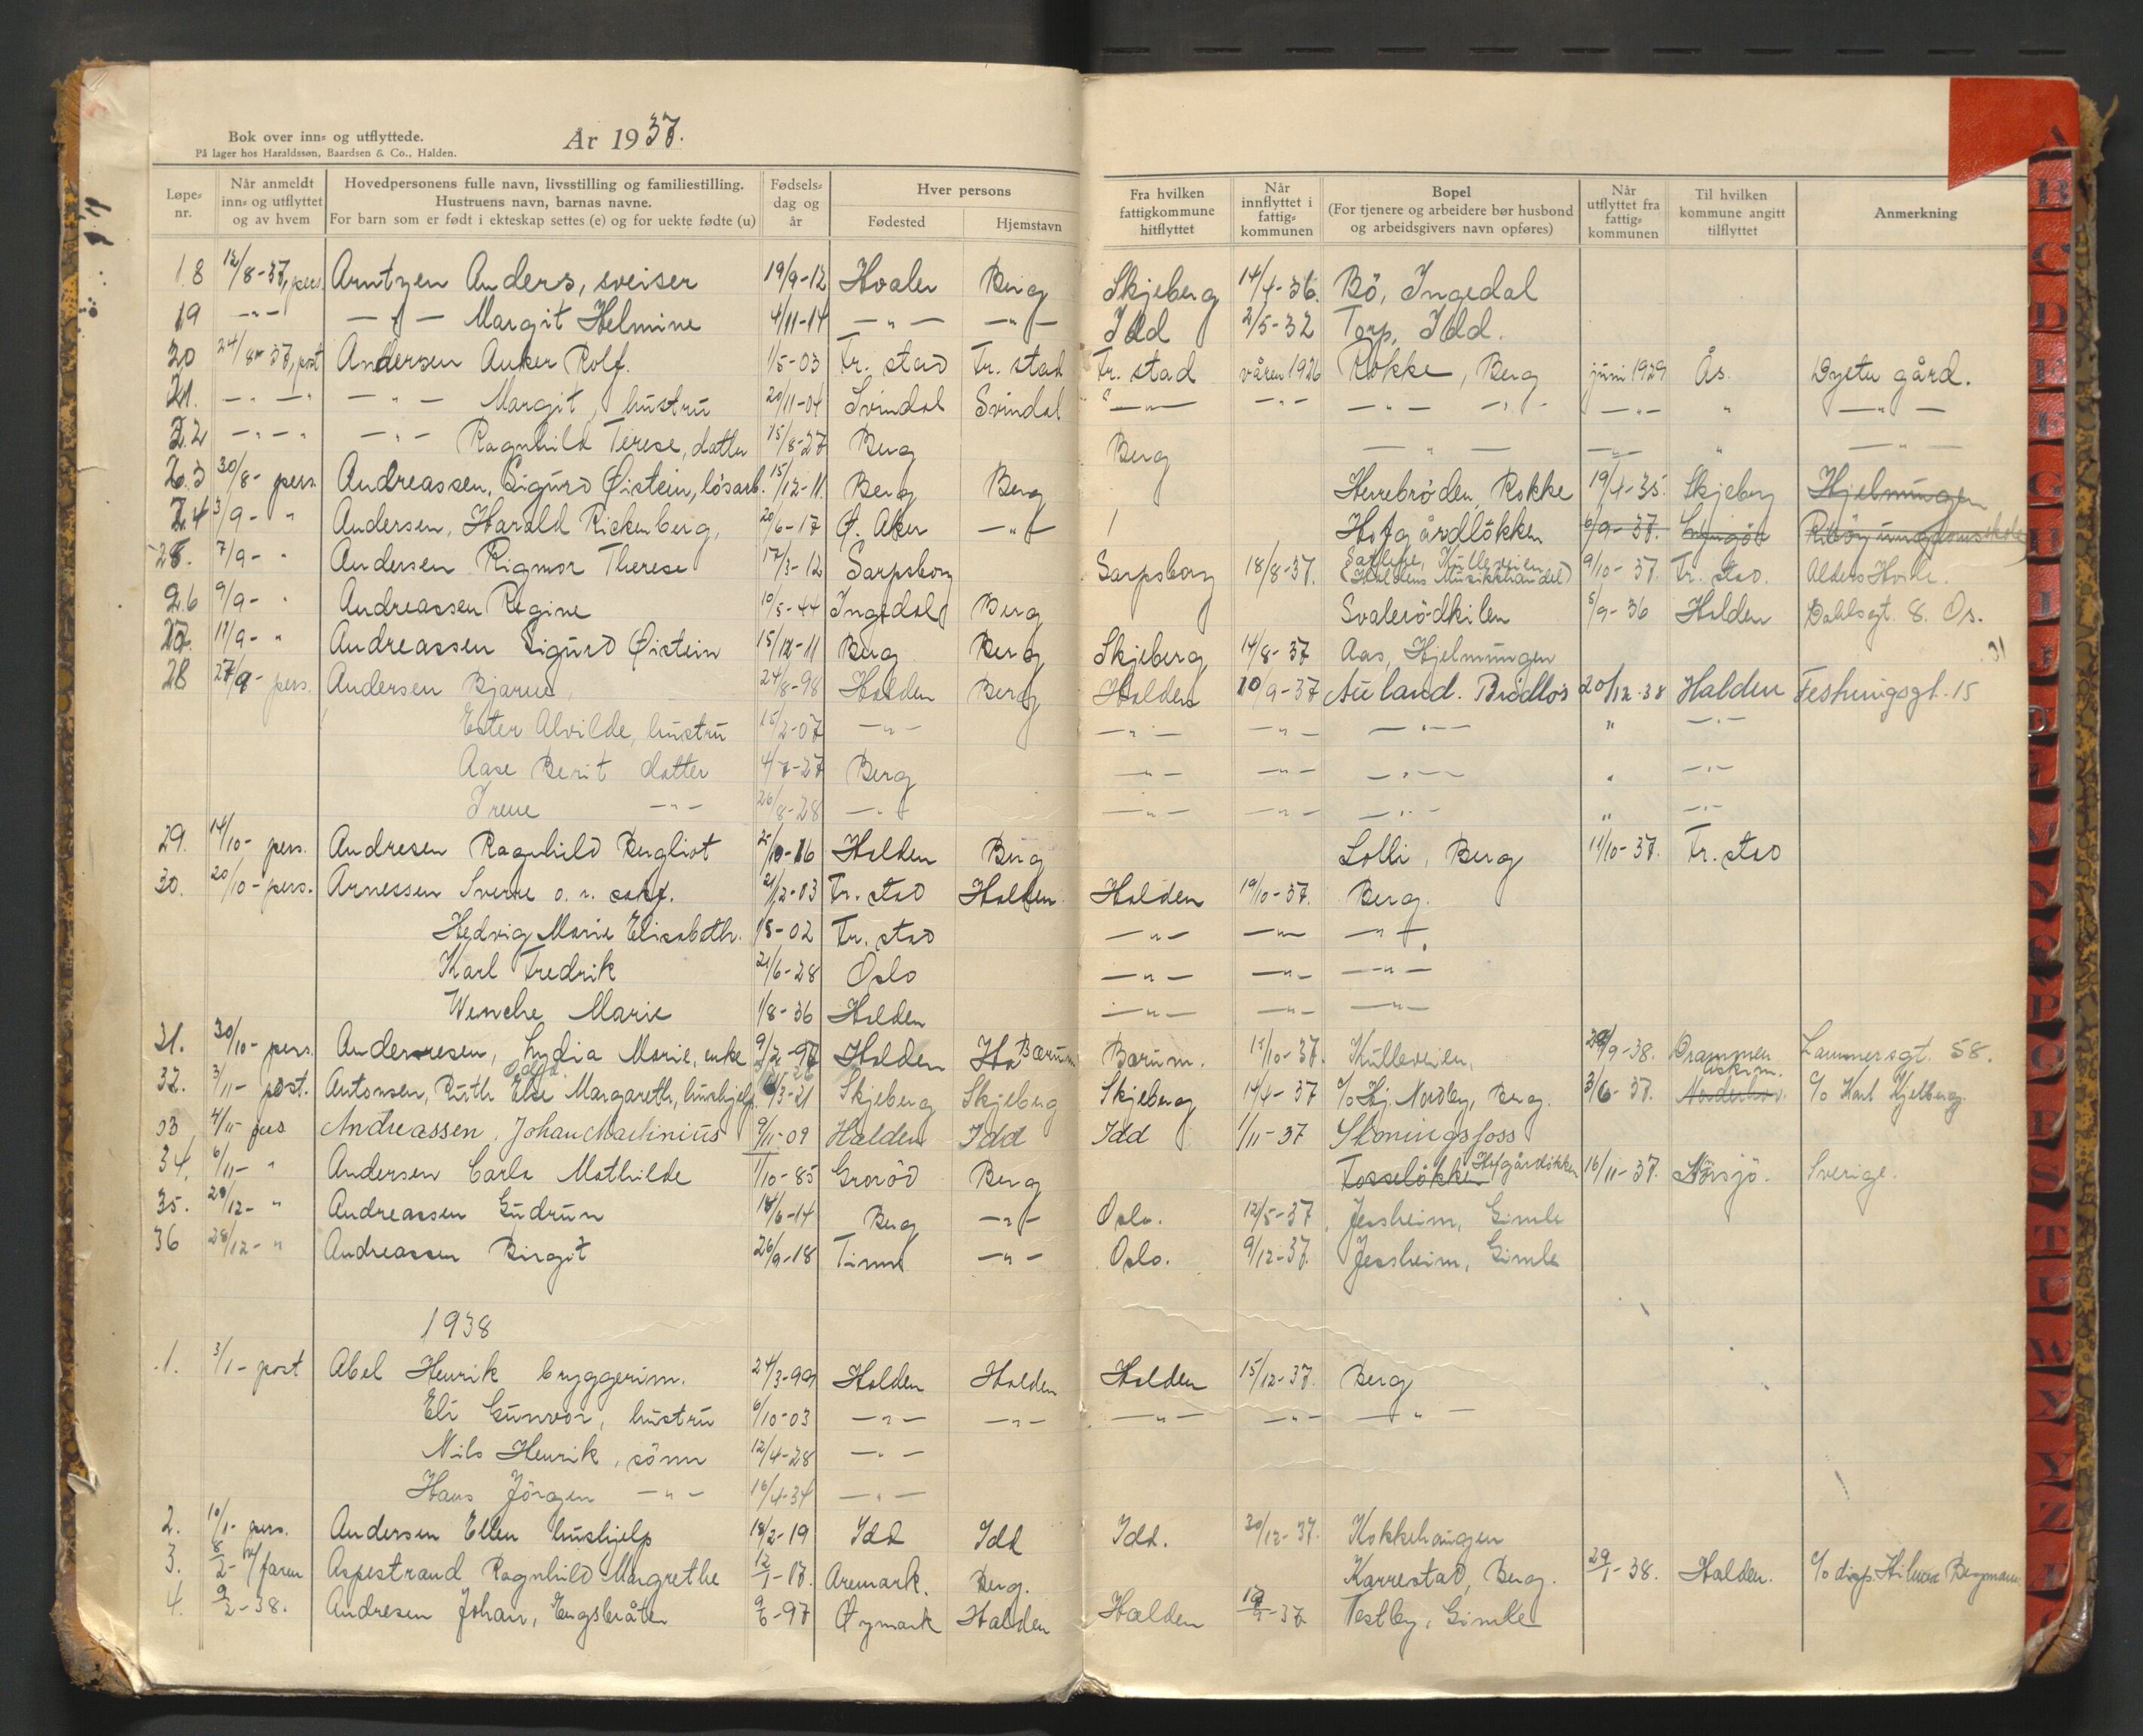 Bok over inn= og utflyttede.
På lager hos Haraldssøn, Baardsen & Co., Halden.
År 1937.
Løpe= nr. | Når anmeldt inn= og utflyttet og av hvem | Hovedpersonens fulle navn, livsstilling og familiestilling. Hustruens navn, barnas navne. For barn som er født i ekteskap settes (e) og for uekte fødte (u) | Fødsels= dag og år | Hver persons Fødested | Hjemstavn | Fra hvilken fattigkommune hitflyttet | Når innflyttet i fattig= kommunen | Bopel (For tjenere og arbeidere bør husbond og arbeidsgivers navn opføres) | Når utflyttet fra fattig= kommunen | Til hvilken kommune angitt tilflyttet | Anmerkning
18 12/8-37, pers. Arntzen Anders, sveiser 19/9-12 Hvaler Berg Skjeberg 14/4-36. Bö, Ingedal
19 -"- -"- Margit Helmine 4/11-14 -"- -"- Idd 2/5-32 Torp, Idd.
20 24/8-37, post Andersen Anker Rolf. 1/5-03 Fr. stad Fr. stad Fr. stad våren 1926 Rokke, Berg juni 1929 Ås. gård.
21. -"- -"- -"- Margit, hustru 20/11-04 Svindal Svindal -"- -"- -"- -"- -"- " -"-
22 -"- -"- -"- Ragnhild Terese, datter 15/8-27 Berg Berg -"- -"- " -"-
23 30/8- pers. Andreassen, Sigurd Øistein, lösarb. 15/12-11 Berg Berg Herrebröden, Rokke 19/4-35. Skjeberg Hjelmungen
24 3/9- " Andersen, Harald Rickenberg, 20/6-17 Ø. Aker -"- Hofgårdlökken 6/9-37.
25. 7/9- " Andersen Rigmor Therese 17/3-12 Sarpsborg Sarpsborg 18/8-37. Kulleveien (Haldens Musikkhandel) 9/10-37. Fr. stad.
26 9/9- " Andreassen Regine 10/5-44 Ingedal Berg Svalerödkilen 5/9-36 Halden Dahlsgt. 8. Os.
27. 11/9- " Andreassen Sigurd Øistein 15/12-11 Berg Berg Skjeberg 14/8-37 Aas, Hjelmungen
28 27/9- pers. Andersen Bjarne, 24/8-98 Halden Berg Halden 10/9-37 Auland. Brödlös 20/12-38 Halden Festningsgt. 15
Ester Alvilde, hustru 15/2-07 -"- -"- -"- -"- " -"-
Aase Berit datter 4/7-27 Berg -"- -"- -"- " -"-
Irene -"- 26/8-28 -"- -"- -"- -"- " -"-
29. 14/10- pers. Andresen Ragnhild Bergliot Halden Berg Lolli, Berg 11/10-37. Fr. stad
30. 20/10- pers. Arnessen Sverre 21/2-03 Fr. stad Halden Halden 19/10-37. Berg.
Hedvig Marie Elisabeth. Fr. stad -"- -"- -"-
Karl Fredrik 21/6-28 Oslo -"- -"- -"-
Wenche Marie 1/8-36 Halden -"- -"- -"-
31. 30/10- pers. Lydia Marie, enke Halden Bærum Bærum. 15/10-37. Kulleveien, 9-38. Drammen Lammersgt. 58.
32. 3/11- post. Antonsen, Ruth Else Margareth, hushjelp. Skjeberg Skjeberg Skjeberg 14/4-37 c/o Hj. Nordby, Berg. 3/6-37. Askim. c/o Karl Kjelberg.
33 4/11- pers Andreassen, Johan Martinius 9/11-09 Halden Idd Idd 1/11-37 Skoningsfoss
34, 6/11- " Andersen Carla Mathilde 1/10-85 Grorød Berg Fosselökken Hofgårdlökken 16/11-37. Sverige.
35. 20/12- " Andreassen Gudrun 14/6-14 Berg -"- Oslo. 12/5-37, Jessheim, Gimle
36 28/12- " Andreassen Birgit 26/9-18 -"- Oslo. 9/12-37. Jessheim, Gimle
1938
1. 3/1- post Abel Henrik bryggerim. 24/3-99 Halden Halden Halden 15/12-37. Berg
Eli Gunvor, hustru 6/10-03 -"- -"- -"- -"- -"-
Nils Henrik, sönn 12/4-28 -"-
Hans Jörgen -"- 16/4-34 -"-
2. 10/1- pers. Andersen Ellen hushjelp 18/2-19 Idd Idd Idd. 30/12-37. Kokkehaugen
3. 8/2- v/faren Aspestrand Ragnhild Margrethe 12/1-17. Aremark. Berg. Karrestad, Berg. 29/1-38. Halden. c/o disp. Bergmann
4. 9/2-38. Andresen Johan, Engsbråten 9/6-97 Øymark Halden Halden Vestby, Gimle
B C D E F G H I J K L M N O P Q R S T U W X Y Z